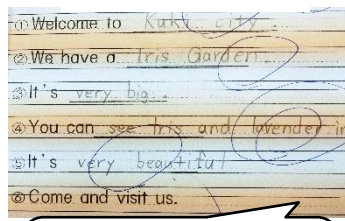 ① Welcome to Kaki city.
② We have a Iris Garden.
③ It's very big.
④ You can see Iris and lavender in
⑤ It's very beautiful
⑥ Come and visit us.